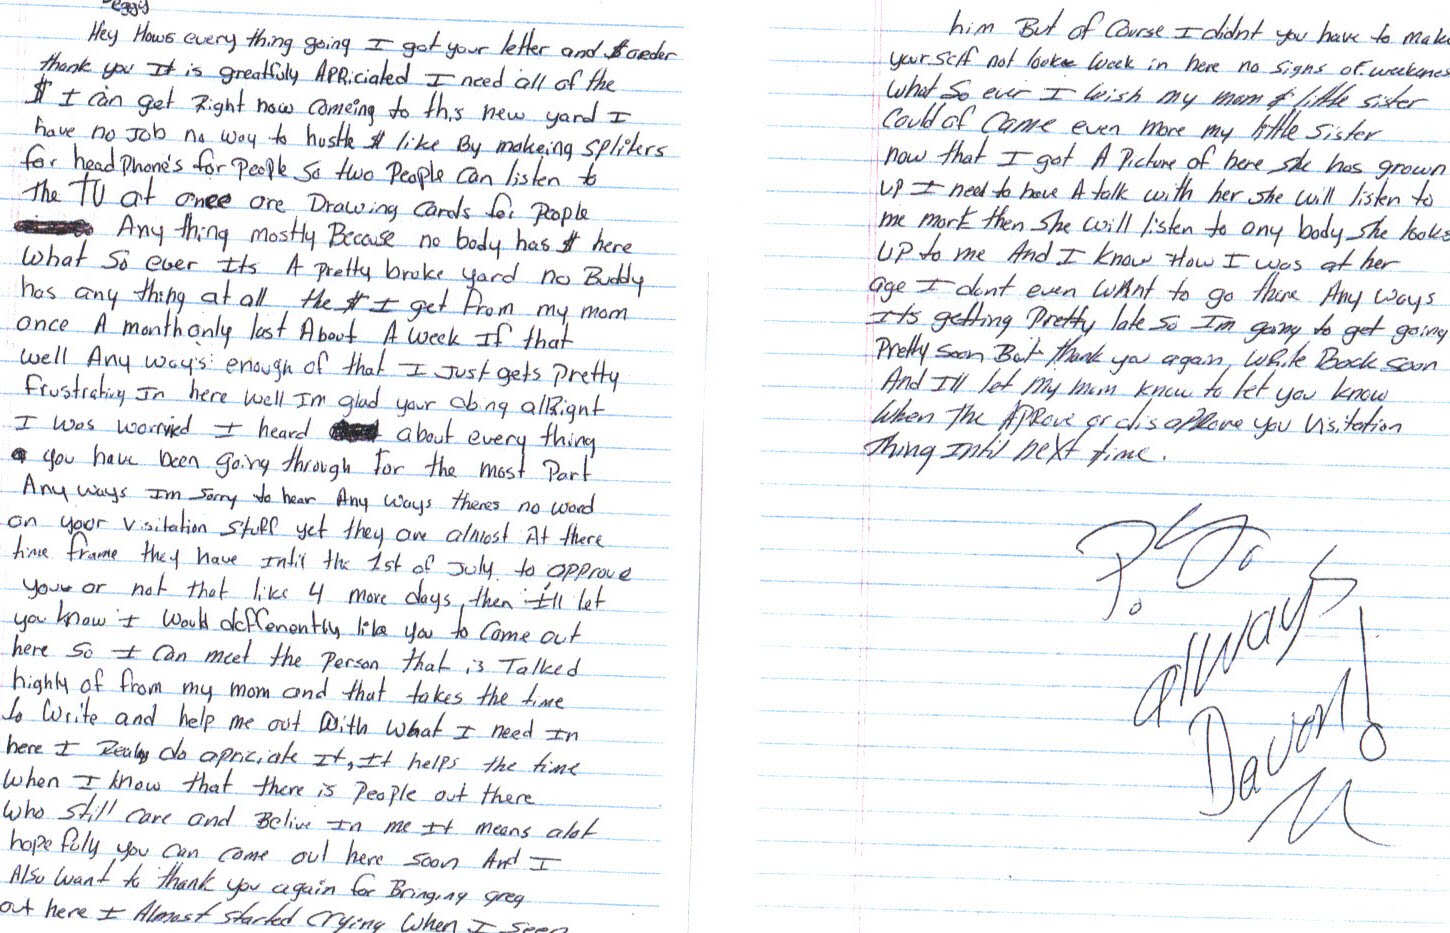 Peggy
Hey Hows every thing going I got your letter and $ order
thank you It is greatfuly APRiciated I need all of the
$ I can get Right now comeing to this new yard I
have no JOB no way to hustle $ like By makeing spliters
for head Phone's for People So two People can listen to
The TV at once ore Drawing Cards for People
Any thing mostly Because no body has $ here
what so ever Its A pretty broke yard no Buddy
has any thing at all the $ I get from my mom
once A month only last About A week If that
well Any ways enough of that I Just gets pretty
frustrating In here well Im glad your doing allRight
I was worried I heard about every thing
you have been going through for the most Part
Any ways Im sorry to hear Any ways theres no word
on your visitation stuff yet they are almost At there
time frame they have Intil the 1st of July to approve
you or not that like 4 more days, then I'll let
you know I would deffenently like you to Come out
here So I Can meet the person that is Talked
highly of from my mom and that takes the time
to Write and help me out With what I need In
here I Realy do apriciate It, It helps the time
when I know that there is People out there
who still care and Belive In me It means alot
hope fuly you can come out here soon And I
Also want to thank you again for Bringing greg
out here I Almost started crying When I seen
him But of Course I didnt you have to make
your self not look week in here no signs of weekness
what so ever I wish my mom & little sister
Could of Came even more my little sister
now that I got A Picture of here she has grown
up I need to have A talk with her she will listen to
me mork then she will listen to any body she looks
up to me And I know How I was at her
age I dont even WANt to go there Any ways
Its getting Pretty late so Im going to get going
Pretty soon But thank you again, write Back soon
And I'll let my mom know to let you know
When The APRove or disapprove you visitation
Thing Intil next time.
allways
Davon!